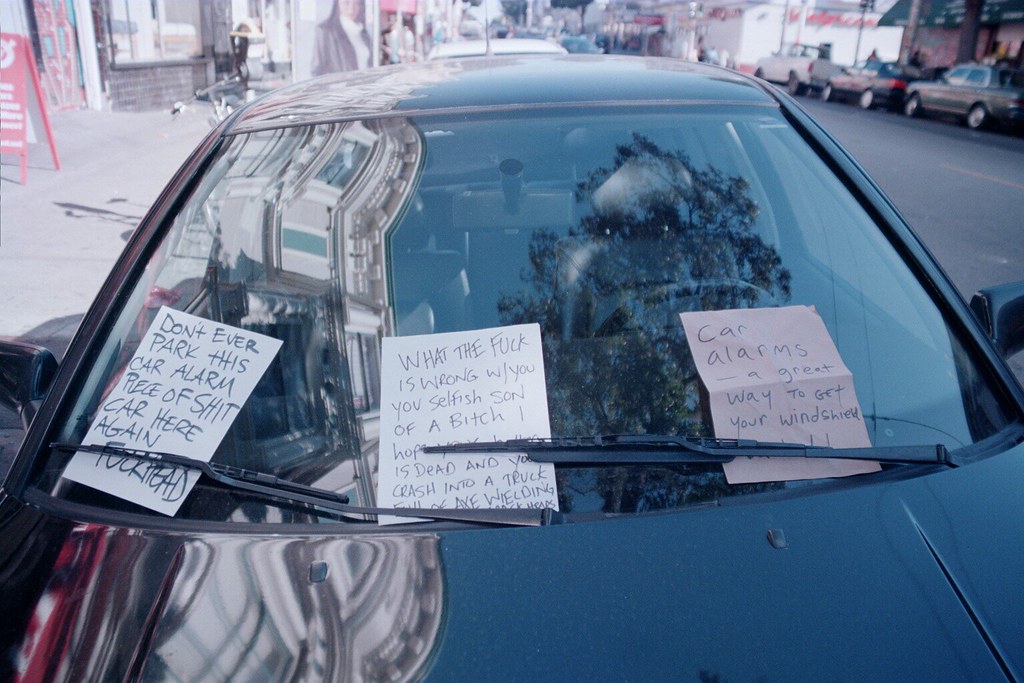 DON'T EVER
PARK THIS
CAR ALARM
PIECE OF SHIT
CAR HERE
AGAIN
FUCKHEAD
WHAT THE FUCK
IS WRONG W/YOU
YOU SELFISH SON
OF A BITCH I
hope
IS DEAD AND YOU
CRASH INTO A TRUCK
FULL OF AXE WIELDING
Car
alarms
— a great
way to get
your windshield